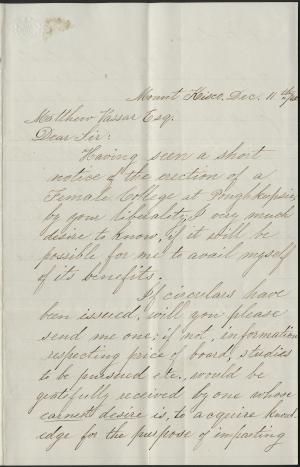 Mount Kisco, Dec. 11th
Matthew Vassar Esq.
Dear Sir:
Having seen a short
notice of the erection of a
Female College at Poughkeepsie,
by your liberality, I very much
desire to know, if it will be
possible for me to avail myself
of its benefits.
If circulars have
been issued, will you please
send me one; if not, information
respecting price of board, studies
to be pursued etc., would be
gratefully received by one whose
earnest desire is, to acquire knowl-
edge for the purpose of imparting